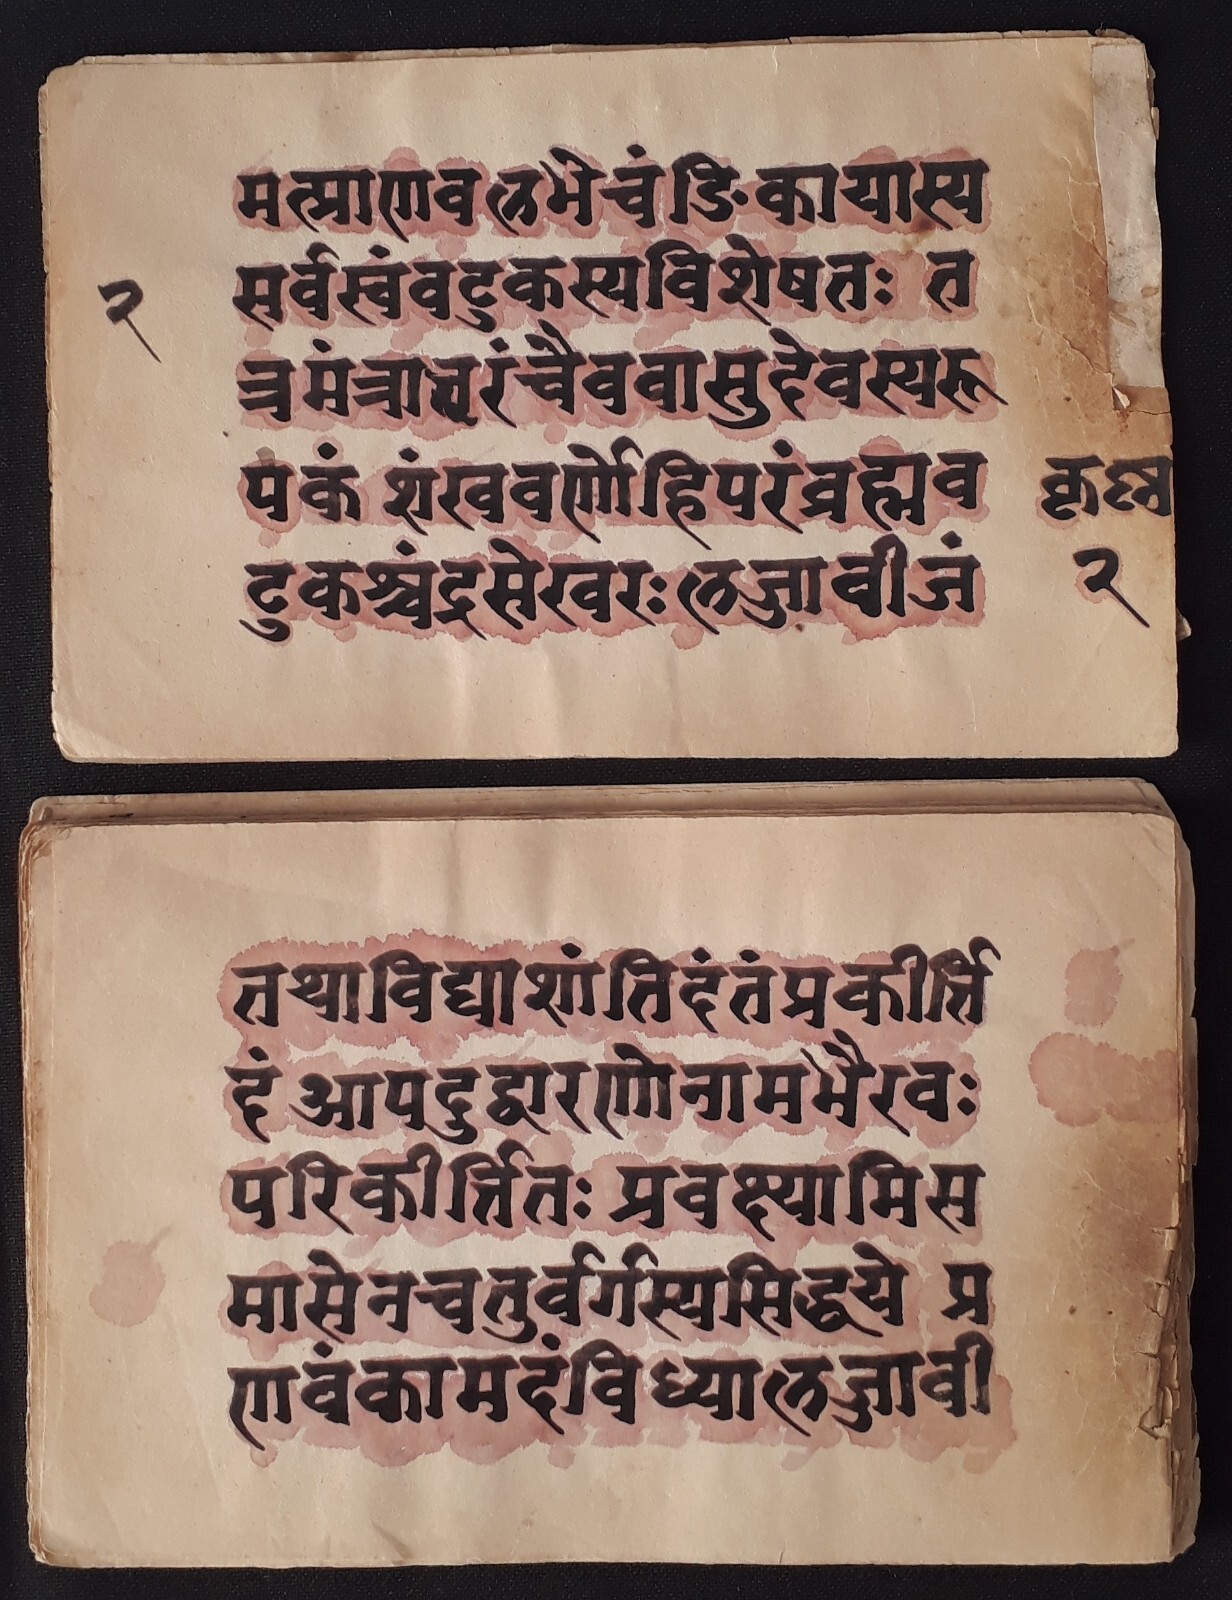 मत्प्राणवल्लभे चंडिकायास्य
सर्वस्वंवटुकस्यविशेषतः त
२
त्रमंत्राक्षरंचैववासुदेवस्यरू
पकं शंखवर्णोहिपरंव्रह्मव
कृष्ण
टुकश्चंद्रसेखरः लजावीजं
२
तथाविद्याशांतिदंतंप्रकीर्त्ति
दं आपदुद्धारणोनामभैरवः
परिकीर्त्तितः प्रवक्ष्यामिस
मासेनचतुर्वर्गस्यसिद्धये प्र
णवंकामदंविध्यालजावी